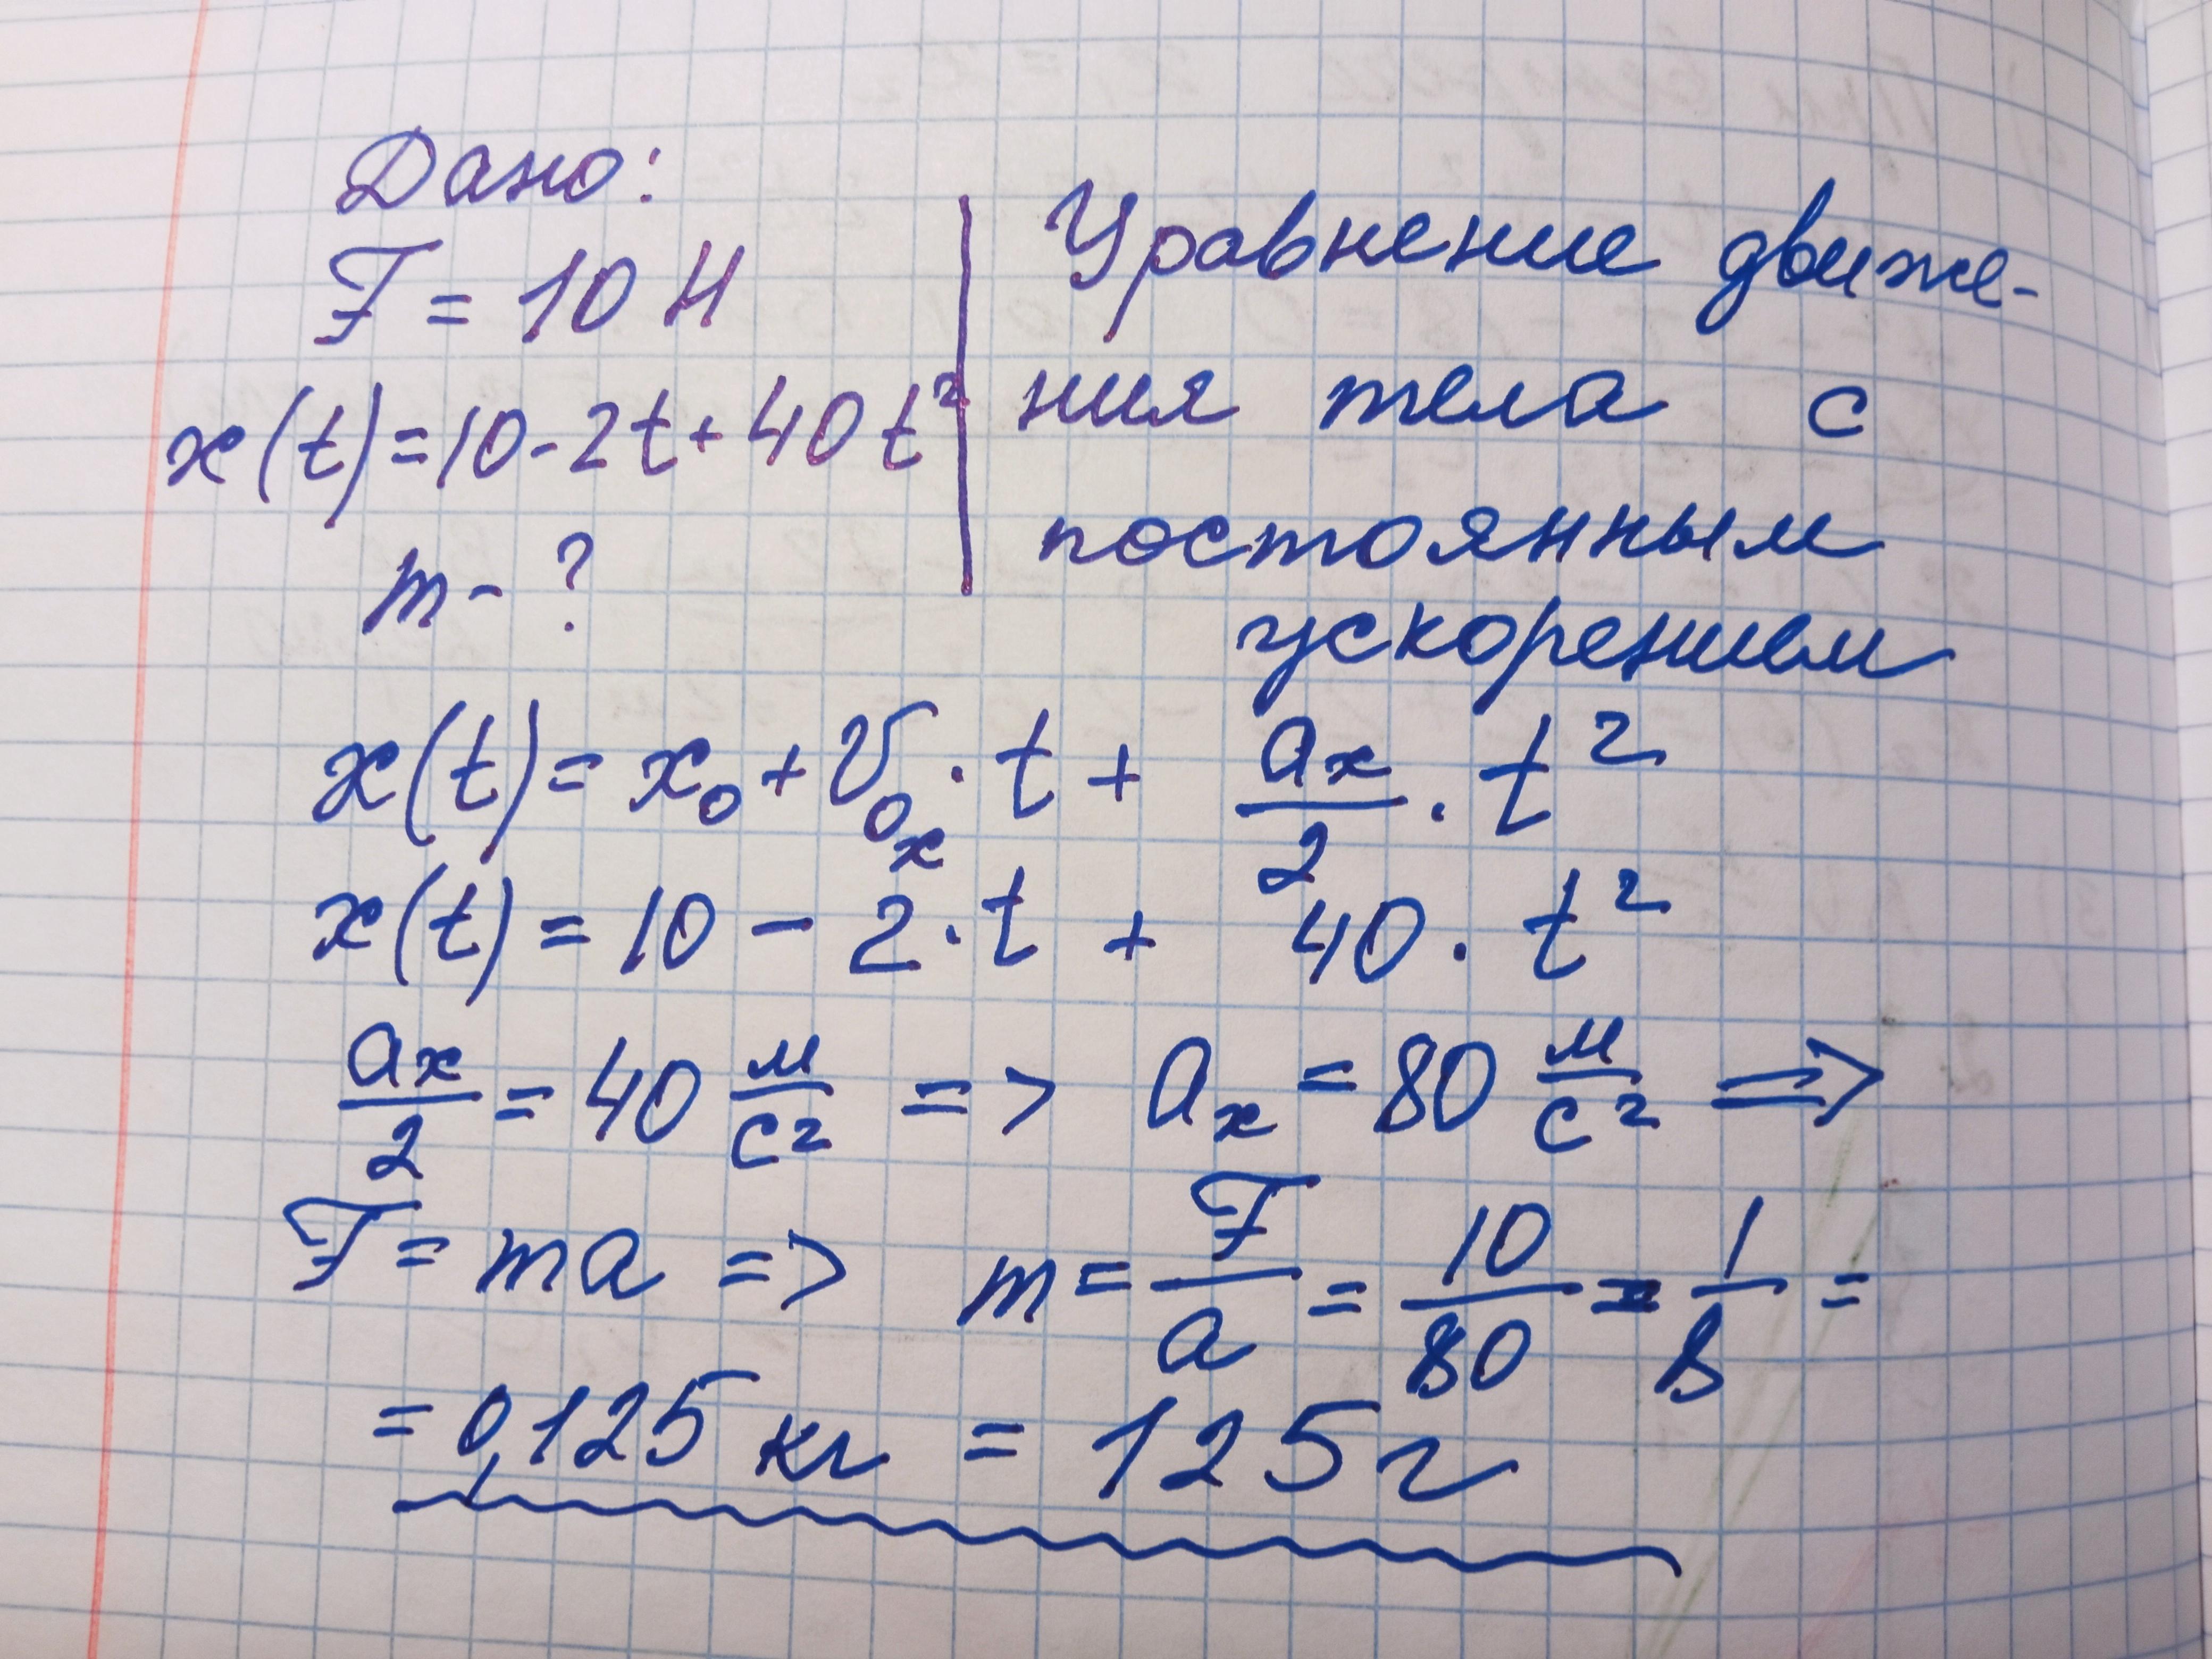 Дано:
F = 10 Н
x(t)=10-2t+40t²
m - ?
Уравнение движе-
ния тела с
постоянным
ускорением
x(t)= x₀+v₀ₓ·t + aₓ/2 · t²
x(t)= 10 - 2·t + 40 · t²
aₓ/2 = 40 м/с² => aₓ = 80 м/с² =>
F = ma => m = F/a = 10/80 = 1/8 =
= 0,125 кг = 125 г